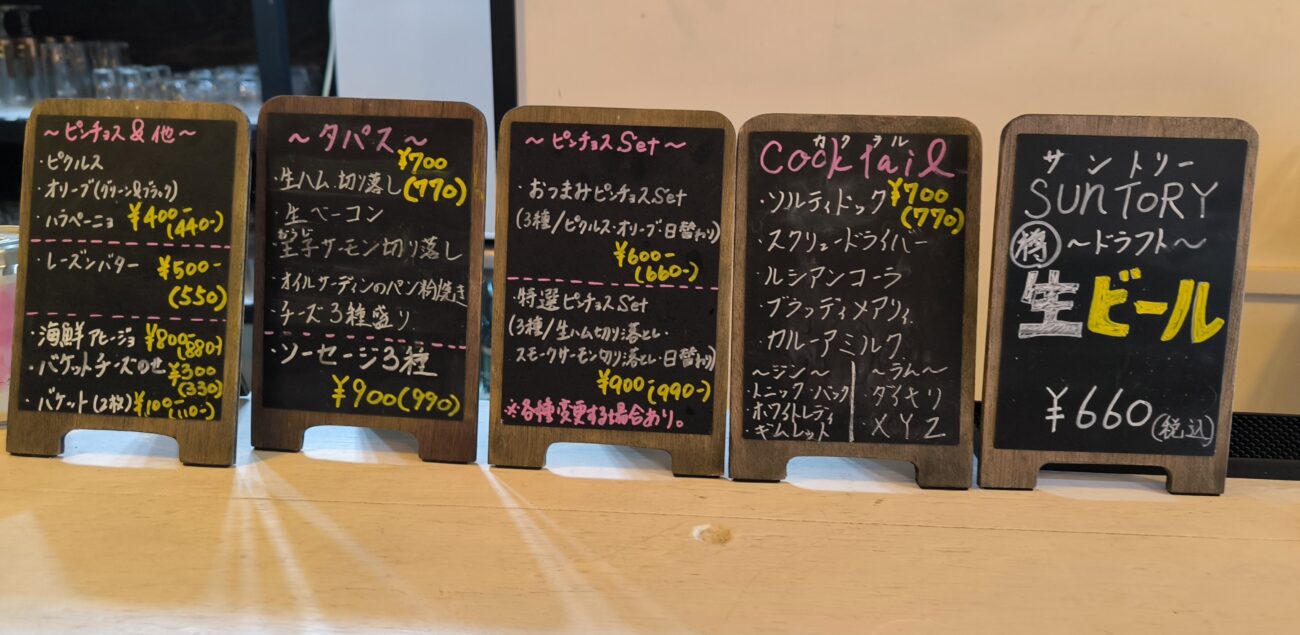 ～ピンチョス&他～
・ピクルス
・オリーブ(グリーン&ブラック)
・ハラペーニョ ¥400-
(440-)
・レーズンバター ¥500-
(550)
・海鮮アヒージョ ¥800-
(880)
・バケットチーズのせ ¥300
(330)
・バケット(2枚) ¥100-
(110-)
～タパス～
¥700
・生ハム切り落し (770)
・生ベーコン
おうじ
・王子サーモン切り落し
・オイルサーディンのパン粉焼き
・チーズ3種盛り
・ソーセージ3種
¥900(990)
～ピンチョスSet～
・おつまみピンチョスSet
(3種/ピクルス・オリーブ・日替わり)
¥600-
(660-)
・特選ピンチョスSet
(3種/生ハム切り落とし・
スモークサーモン切り落とし・日替わり)
¥900-(990-)
※各種変更する場合あり。
カクテル
Cocktail
・ソルティドック ¥700
(770)
・スクリュードライバー
・ルシアンコーラ
・ブラッディメアリィ
・カルーアミルク
～ジン～
・トニック・バック
・ホワイトレディ
・ギムレット
～ラム～
・ダイキリ
・XYZ
サントリー
SUNTORY
樽 ～ドラフト～
生ビール
¥660(税込)